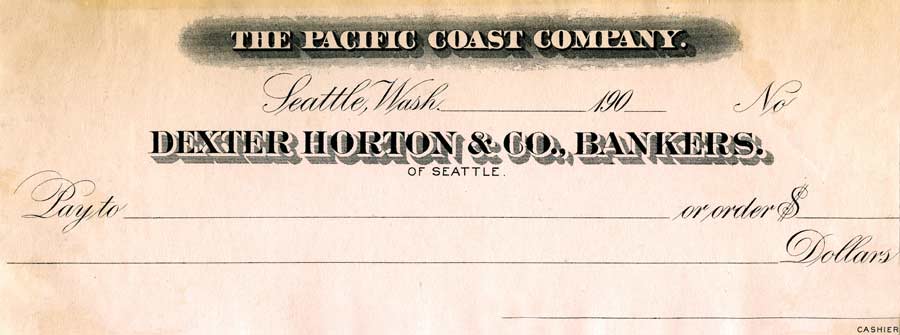 THE PACIFIC COAST COMPANY.
Seattle, Wash. 190 No
DEXTER HORTON & CO., BANKERS.
OF SEATTLE.
Pay to or order $
Dollars
CASHIER